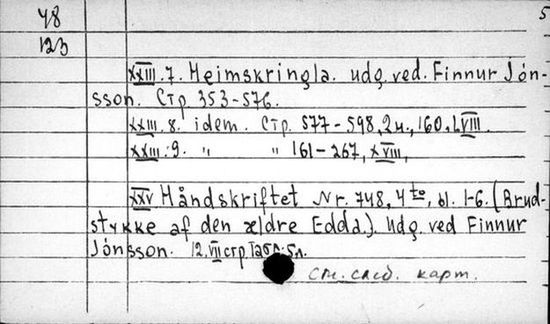 48
5
123
XXIII.7. Heimskringla. udg. ved. Finnur Jón-
sson. Стр. 353-576.
XXIII. 8. idem. Стр. 577-598, 2 н., 160, LVIII.
XXIII. 9. " " 161-267, XVIII,
XXV Håndskriftet Nr. 748, 4to, bl. 1-6. (Brud-
stykke af den ældre Edda.). Udg. ved Finnur
Jónsson. 12. VII стр. Табл. 5л.
см. след. карт.